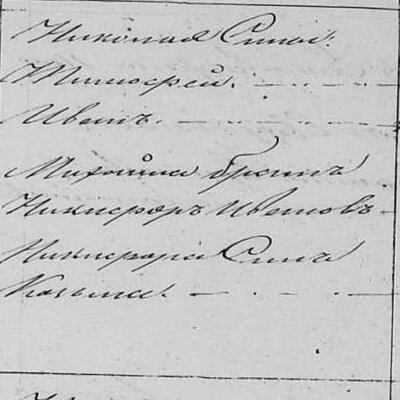 Николая Сыны:
Тимофей.
Иванъ.
Михайла братъ
Никифоръ Ивановъ
Никифора Сынъ
Козьма.